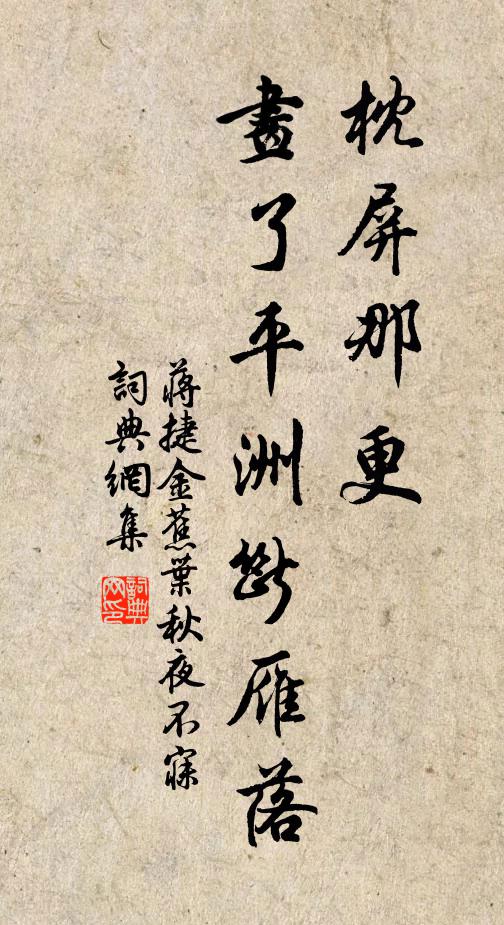 枕屏那更
畫了平洲斷雁落
蔣捷金蕉葉秋夜不寐
詞典網集
詞典
网印